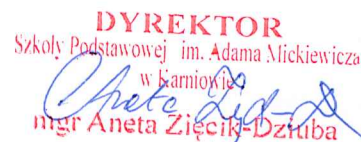 DYREKTOR
Szkoły Podstawowej im. Adama Mickiewicza
w Karniowie
mgr Aneta Zięcik-Dziuba